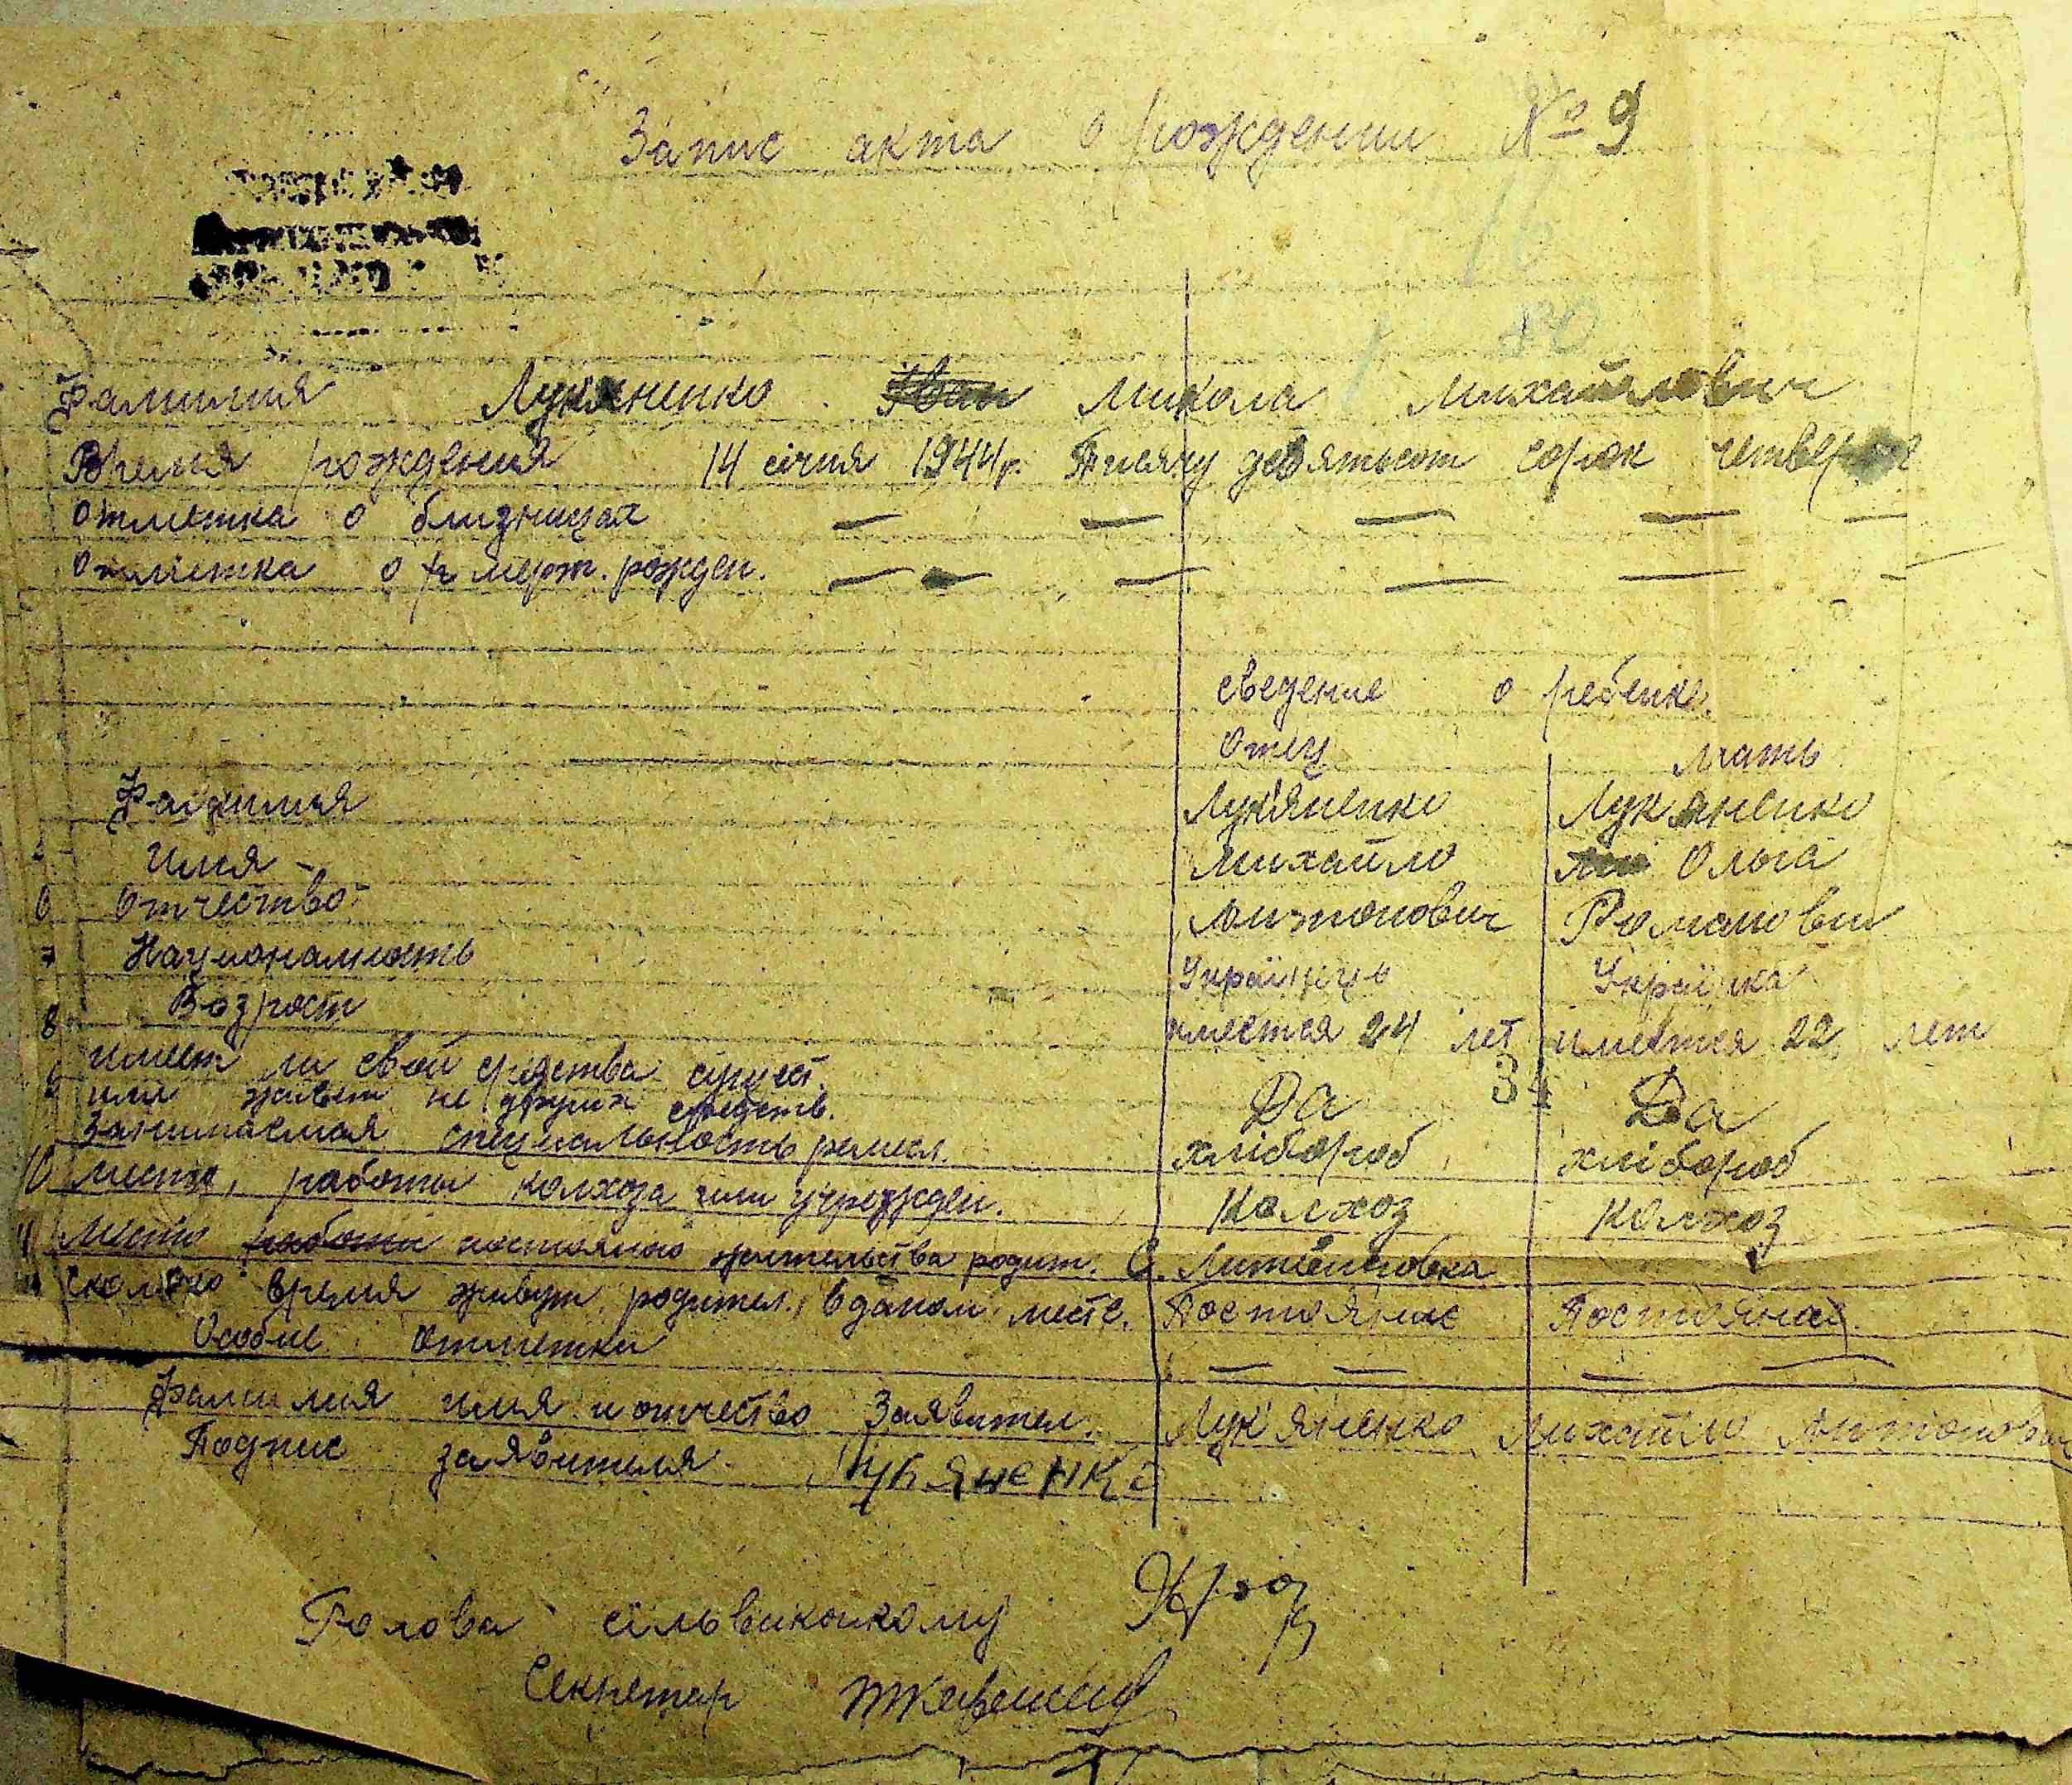 Запис акта о рождении № 9
16
80
Фамилия Лукяненко Іван Микола Михайлович
Время рождения 14 січня 1944р. Тисячу девятьсот сорок четверт
Отметка о близнецах — — — — —
Отметка о мерт. рожден. — — — — — —
сведение о ребенке.
Отец Мать
Фамилия Лук'яненко Лукяненко
Имя - Михайло Ольга
6 Отчество Антонович Романовн
7 Национальность Українець Українка
8 Возрост имеется 24 лет имеется 22 лет
34
имеет ли свои средства сущест. Да Да
или живет на других средств.
Занимаемая специальность ремесл. хлібороб хлібороб
10 место, работы колхоза или учрежден. Колхоз Колхоз
11 Место работи постояного жительства родит. С.
сколько время живут родител. в даном месте. Постояние Постояние
Особые отметки — — — —
Фамилия имя и отчество Заявител. Лук'яненко Михайло Антонови
Подпис заявителя Лукяненко
Голова сільвиконкому
Секретар